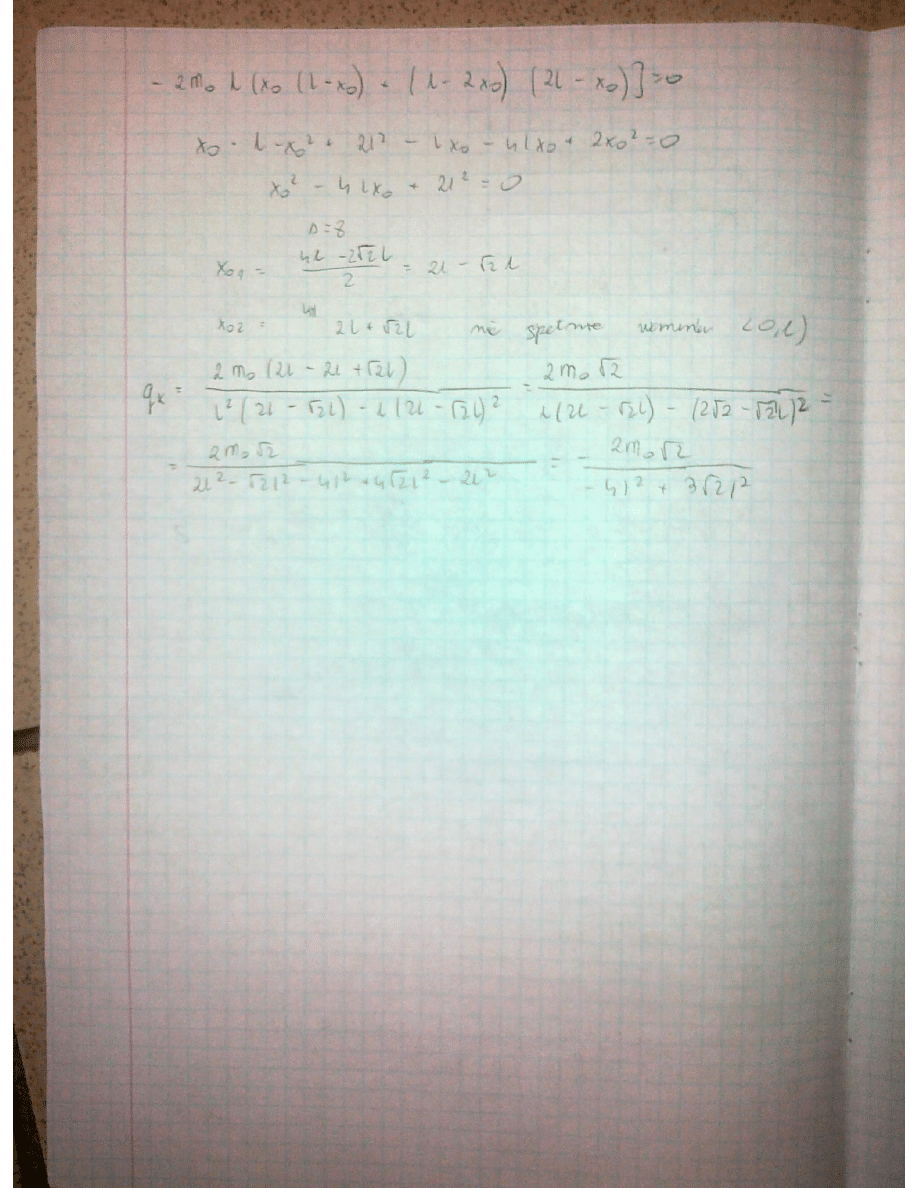 - 2m₀ l (x₀ (l-x₀) + (l - 2x₀) (2l - x₀)] = 0
x₀ · l - x₀² + 2l² - lx₀ - 4lx₀ + 2x₀² = 0
x₀² - 4lx₀ + 2l² = 0
Δ=8
x₀₁ = (4l - 2√2l)/2 = 2l - √2 l
x₀₂ = 2l + √2l nie spełnia <0,l)
qₖ = 2m₀(2l - 2l + √2l)/(l²(2l - √2l) - l(2l - √2l)²) = 2m₀√2/(l(2l - √2l) - (2√2 - √2l)²) =
= 2m₀√2/(2l² - √2l² - 4l² + 4√2l² - 2l²) = - 2m₀√2/(-4l² + 3√2l²)